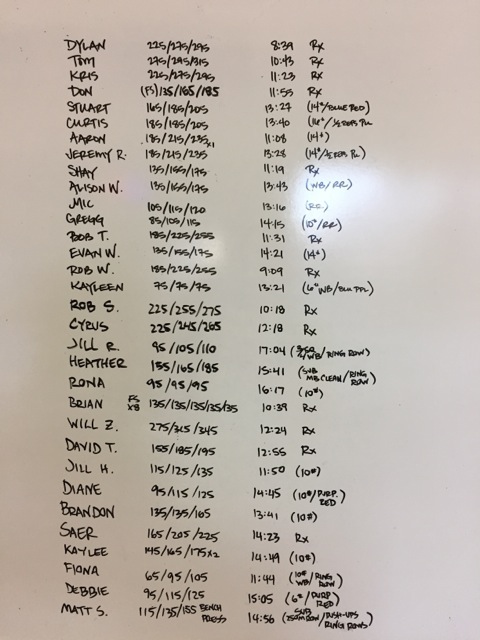 DYLAN 225/275/295 8:39 Rx
TOM 275/295/315 10:43 Rx
KRIS 225/275/295 11:23 Rx
DON (FS) 135/165/185 11:55 Rx
STUART 165/185/205 13:27 (14#/BLUE RED)
CURTIS 185/185/205 13:40 (14#/½ REPS PU
AARON 185/215/235x1 11:08 (14#)
JEREMY R. 185/215/235 13:28 (14#/½ REPS PU
SHAY 135/155/175 11:19 Rx
ALISON W. 135/155/175 13:43 (WB/RR)
MIC 105/115/120 13:16 (RR)
GREGG 85/105/115 14:15 (10#/RR)
BOB T. 185/225/255 11:31 Rx
EVAN W. 135/155/175 14:21 (14#)
ROB W. 185/225/255 9:09 Rx
KAYLEEN 75/75/75 13:21 (6# WB/BLU PPL)
ROB S. 225/255/275 10:18 Rx
CYRUS 225/245/265 12:18 Rx
JILL R. 95/105/110 17:04 (WB/RING ROW)
HEATHER 155/165/185 15:41 (SUB MB CLEAN/RING ROW)
RONA 95/95/95 16:17 (10#)
BRIAN FS X8 135/135/135/135/135 10:39 Rx
WILL Z. 275/315/345 12:24 Rx
DAVID T. 155/185/195 12:55 Rx
JILL H. 115/125/135 11:50 (10#)
DIANE 95/115/125 14:45 (10#/PURP. RED)
BRANDON 135/135/165 13:41 (10#)
SAER 165/205/225 14:23 Rx
KAYLEE 145/165/175x2 14:49 (10#)
FIONA 65/95/105 11:44 (10# WB/RING ROW)
DEBBIE 95/115/125 15:05 (6#/PURP RED)
MATT S. 115/135/155 BENCH PRESS 14:56 (SUB 250M ROW/PUSH-UPS RING ROWS)